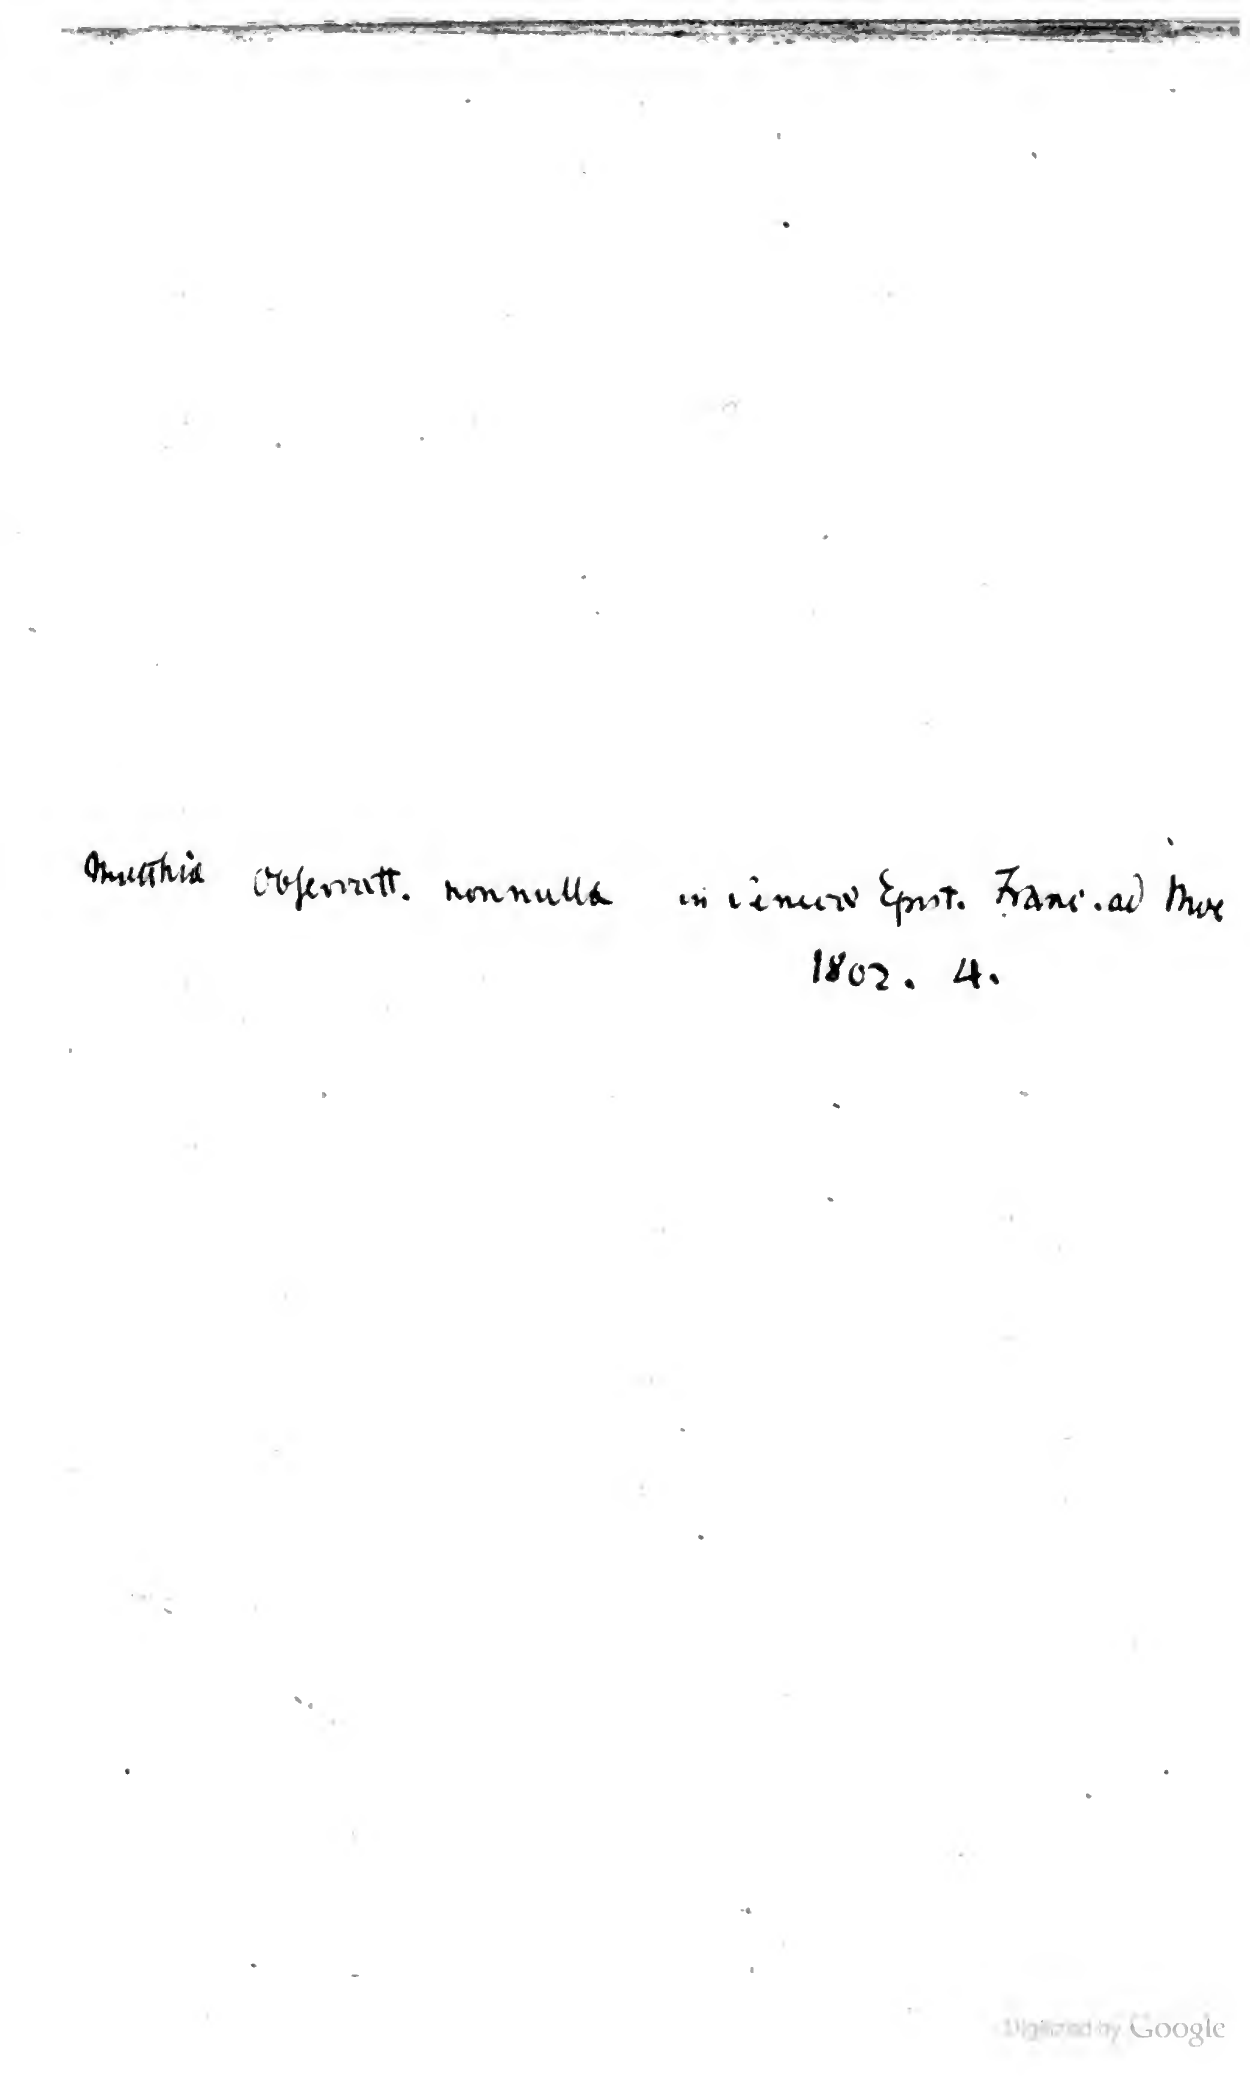 Matthiä Observatt. nonnulla in Epist. Franc. ad
1802. 4.
Digitized by Google